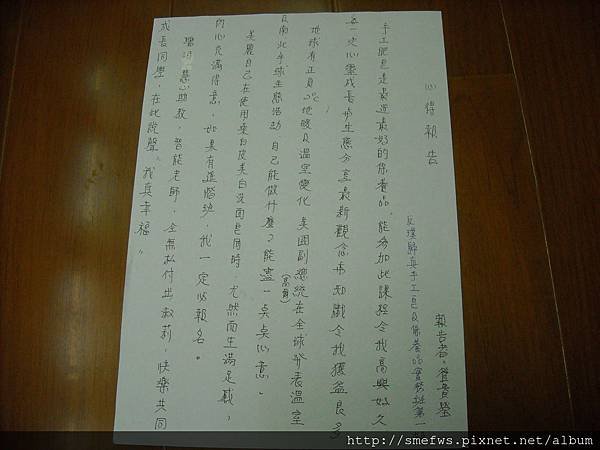 心得報告
反璞歸真手工皂及保養品實務班第一
報告者。
手工肥皂是最近最好的保養品。能參加此課程令我高興好久
每一次心靈成長與生態分享最新觀念與知識令我獲益良多
地球有正負2℃地暖及溫室變化 美國副總統(高爾)在全球發表溫室
及南北半球生態活動 自己能做什麼?能盡一点点心意。
美麗自己在使用蛋白皮美白洗面皂同時,尤然而生滿足感,
內心充滿得意,如果有進階班,我一定必報名。
慧心助教,智能老師,全無私付出教莉,快樂共同
成長同學,在此說聲、我真幸福。
http://smefws.pixnet.net/album